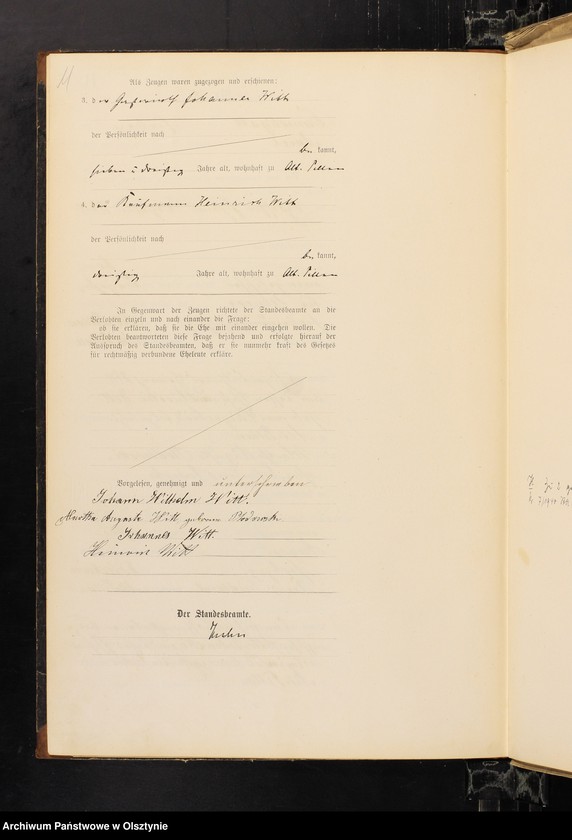 11
Als Zeugen waren zugezogen und erschienen:
3. der Johannes Witt
der Persönlichkeit nach
be kannt,
sieben u dreißig Jahre alt, wohnhaft zu Alt. Pillau
4. der Kaufmann Heinrich Witt
der Persönlichkeit nach
be kannt,
dreißig Jahre alt, wohnhaft zu Alt. Pillau
In Gegenwart der Zeugen richtete der Standesbeamte an die
Verlobten einzeln und nach einander die Frage:
ob sie erklären, daß sie die Ehe mit einander eingehen wollen. Die
Verlobten beantworteten diese Frage bejahend und erfolgte hierauf der
Ausspruch des Standesbeamten, daß er sie nunmehr kraft des Gesetzes
für rechtmäßig verbundene Eheleute erkläre.
Vorgelesen, genehmigt und unterschrieben
Johann Wilhelm Witt.
Martha Auguste Witt geborene
Johannes Witt.
Heinrich Witt
Der Standesbeamte.
Archiwum Państwowe w Olsztynie